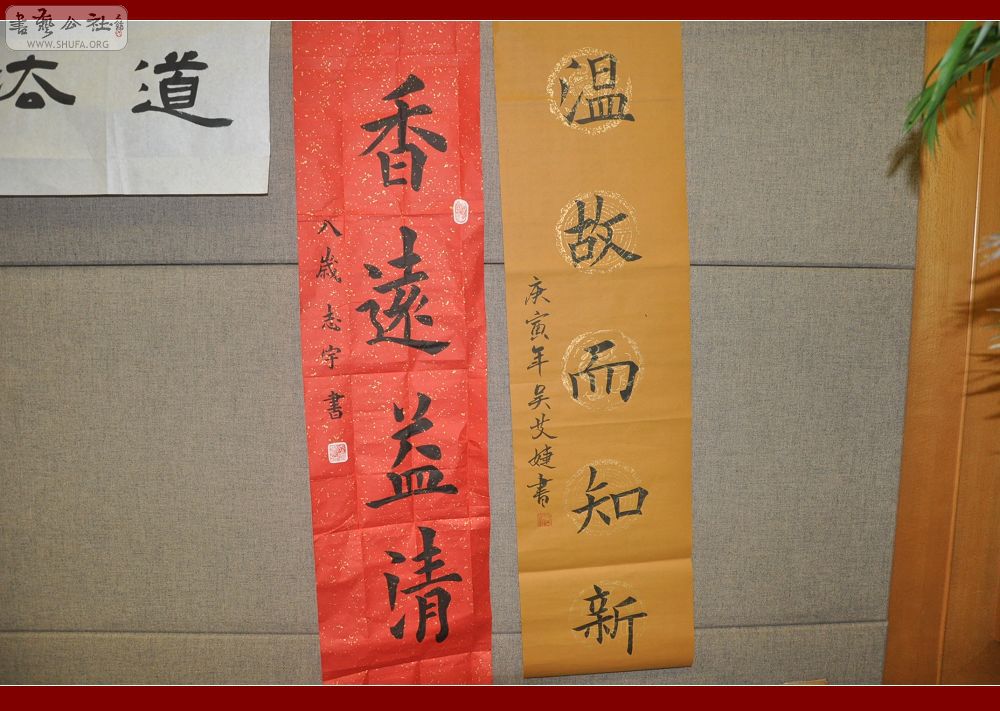 書藝公社
WWW.SHUFA.ORG
道法
香遠益清
八歲志宇書
温故而知新
庚寅年吴艾婕書